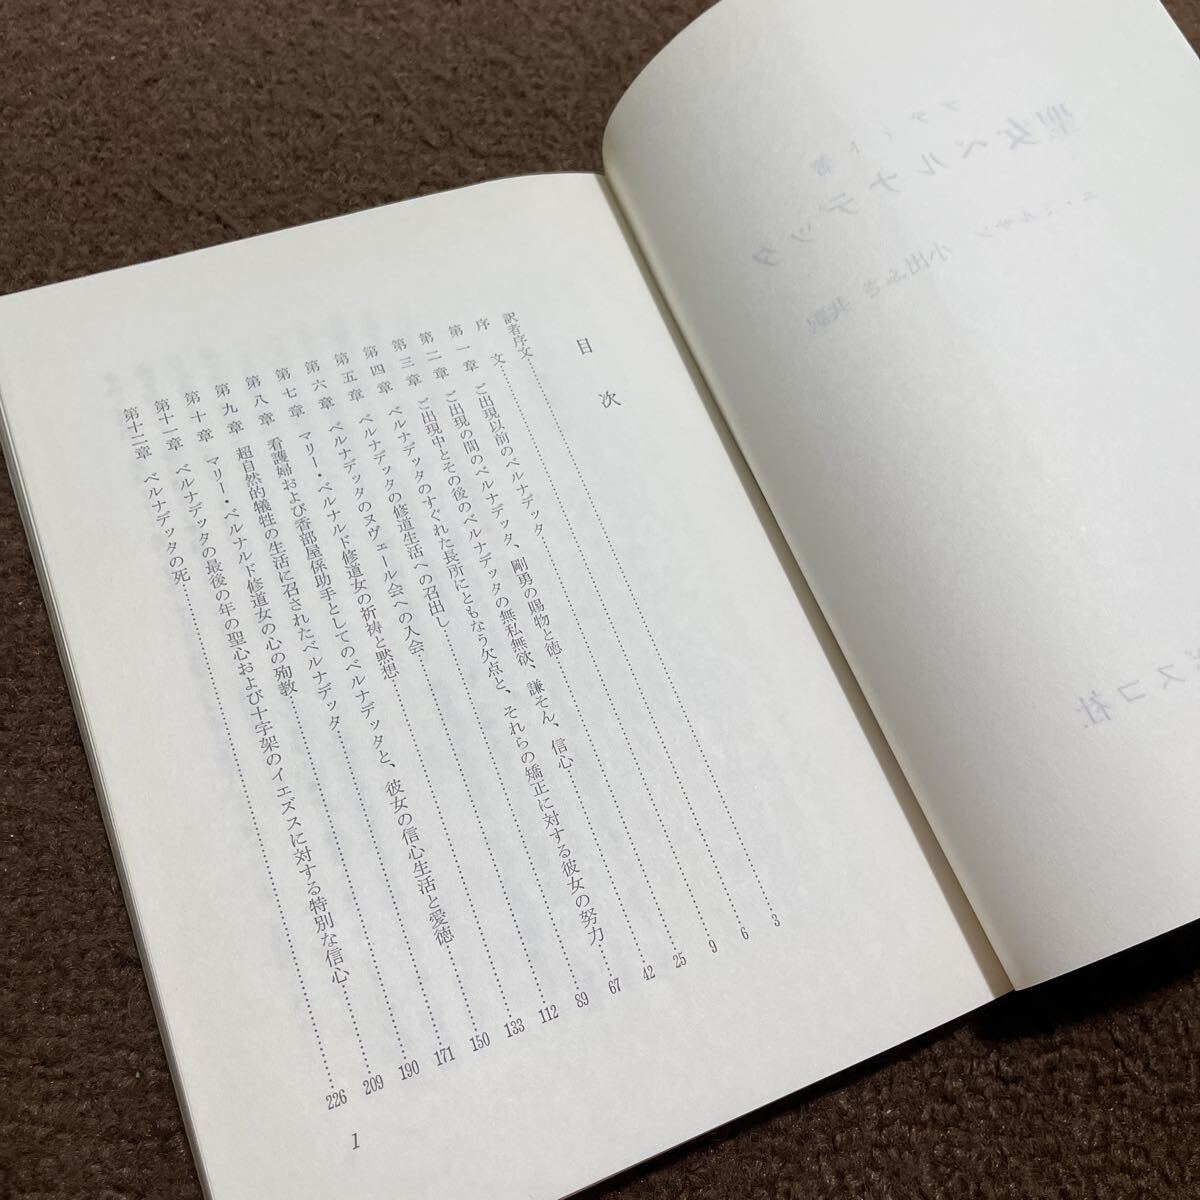 目次
訳者序文……3
序文……6
第一章 ご出現以前のベルナデッタ……9
第二章 ご出現の間のベルナデッタ、剛勇の賜物と徳……25
第三章 ご出現中とその後のベルナデッタの無私無欲、謙そん、信心……42
第四章 ベルナデッタのすぐれた長所にともなう欠点と、それらの矯正に対する彼女の努力……67
第五章 ベルナデッタの修道生活への召出し……89
第六章 ベルナデッタのヌヴェール会への入会……112
第七章 マリー・ベルナルド修道女の祈祷と黙想……133
第八章 看護婦および香部屋係助手としてのベルナデッタと、彼女の信心生活と愛徳……150
第九章 超自然的犠牲の生活に召されたベルナデッタ……171
第十章 マリー・ベルナルド修道女の心の殉教……190
第十一章 ベルナデッタの最後の年の聖心および十字架のイエズスに対する特別な信心……209
第十二章 ベルナデッタの死……226
1
聖女ベルナデッタ
小出ふさ 共訳
スコ社